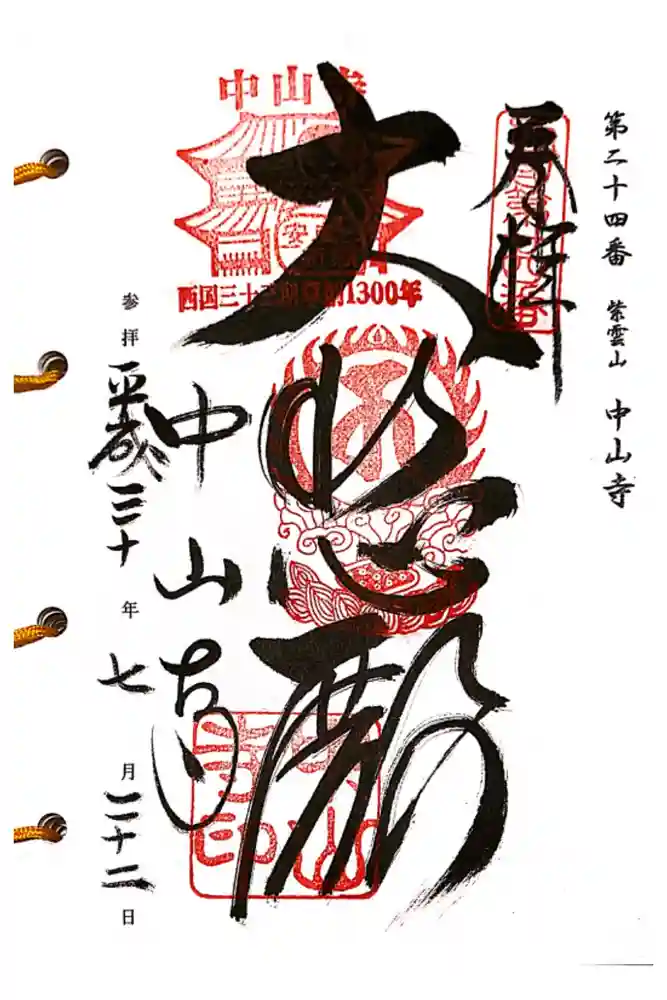 第二十四番 紫雲山 中山寺
奉拝
大悲殿
中山寺
参拝 平成三十年七月二十二日
中山寺
西国三十三所草創1300年